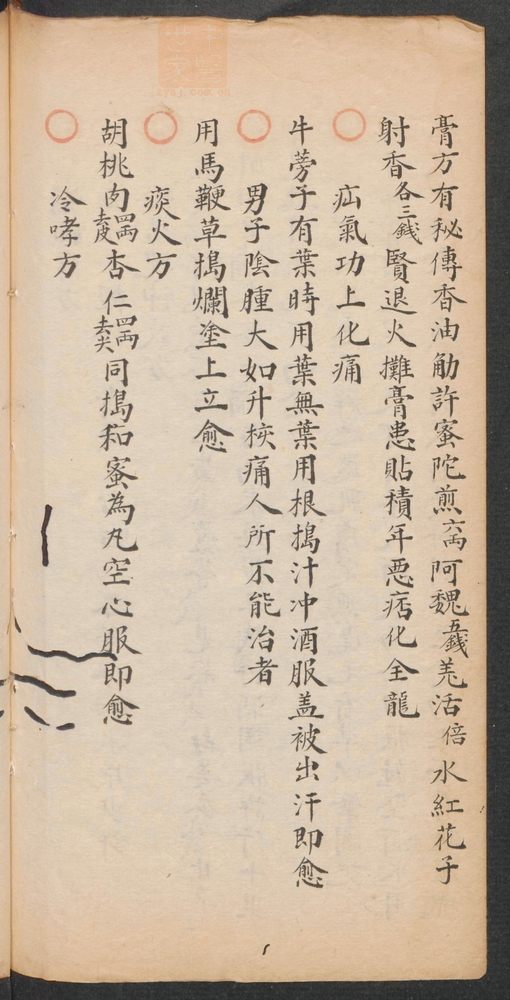 膏方有秘傳香油觔許蜜陀煎六兩阿魏五錢羌活倍水紅花子
射香各三錢賢退火攤膏患貼積年惡痞化全龍
○ 疝氣功上化痛
牛蒡子有葉時用葉無葉用根搗汁冲酒服盖被出汗即愈
○ 男子陰腫大如升核痛人所不能治者
用馬鞭草搗爛塗上立愈
○ 痰火方
胡桃肉四兩去皮杏仁四兩去尖同搗和蜜為丸空心服即愈
○ 冷哮方